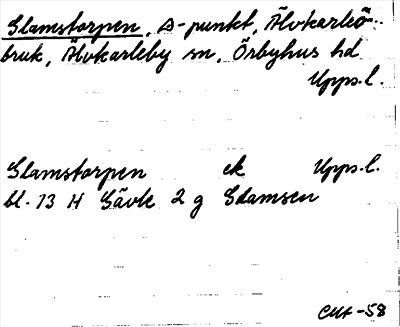 Glamstorpen, Δ-punkt, Älvkarleö
bruk, Älvkarleby sn, Örbyhus hd
Upps.l.
Glamstorpen ek Upps.l.
bl. 13 H Gävle 2 g Glamsen
CMA-58